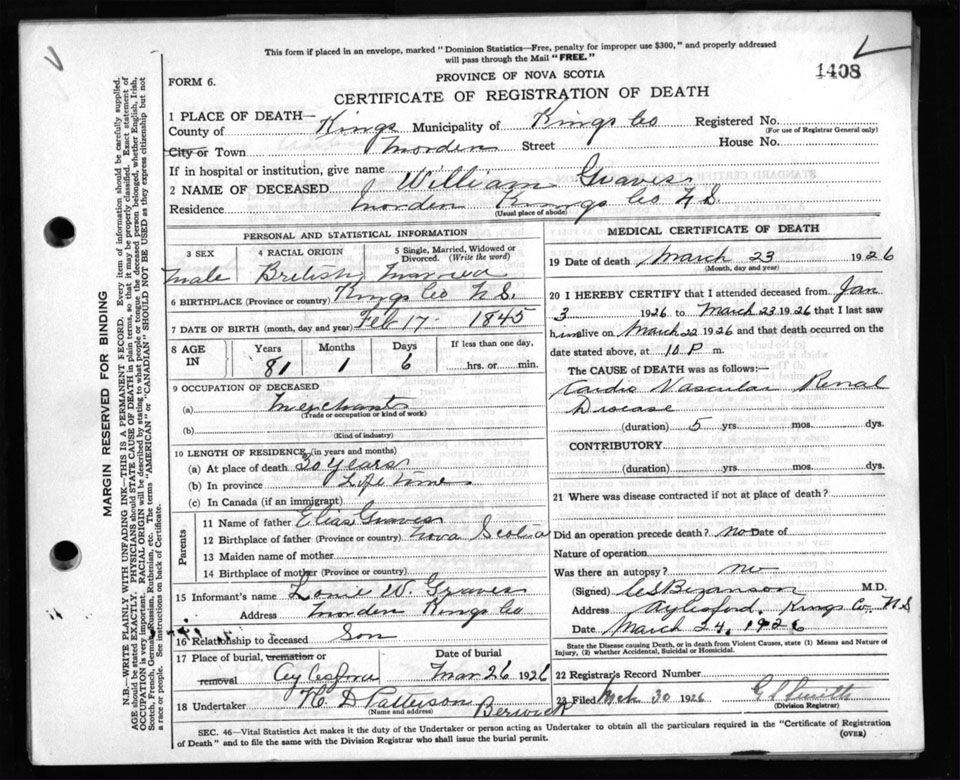 This form if placed in an envelope, marked "Dominion Statistics—Free, penalty for improper use $300," and properly addressed
will pass through the Mail "FREE."
1408
FORM 6.
PROVINCE OF NOVA SCOTIA
CERTIFICATE OF REGISTRATION OF DEATH
1 PLACE OF DEATH—
County of Kings Municipality of Kings Co Registered No.
(For use of Registrar General only)
City or Town Morden Street House No.
If in hospital or institution, give name
2 NAME OF DECEASED William Graves
Residence Morden Kings Co N.S.
(Usual place of abode)
PERSONAL AND STATISTICAL INFORMATION
3 SEX 4 RACIAL ORIGIN 5 Single, Married, Widowed or
Divorced. (Write the word)
male British married
6 BIRTHPLACE (Province or country) Kings Co N.S.
7 DATE OF BIRTH (month, day and year) Feb 17 - 1845
8 AGE IN Years Months Days If less than one day,
81 1 6 hrs. or min.
9 OCCUPATION OF DECEASED
(a) Merchant
(Trade or occupation or kind of work)
(b)
(Kind of industry)
10 LENGTH OF RESIDENCE (in years and months)
(a) At place of death 30 years
(b) In province Life time
(c) In Canada (if an immigrant)
Parents
11 Name of father Elias Graves
12 Birthplace of father (Province or country) Nova Scotia
13 Maiden name of mother
14 Birthplace of mother (Province or country)
15 Informant's name W. Graves
Address Morden Kings Co
16 Relationship to deceased Son
17 Place of burial, cremation or Date of burial
removal Aylesford Mar 26 1926
18 Undertaker H. D Patterson Berwick
(Name and address)
MEDICAL CERTIFICATE OF DEATH
19 Date of death March 23 1926
(Month, day and year)
20 I HEREBY CERTIFY that I attended deceased from Jan
3 1926 to March 23 1926 that I last saw
him alive on March 22 1926 and that death occurred on the
date stated above, at 10 P m.
The CAUSE of DEATH was as follows:—
Cardio Vascular Renal
Disease
(duration) 5 yrs. mos. dys.
CONTRIBUTORY
(duration) yrs. mos. dys.
21 Where was disease contracted if not at place of death?
Did an operation precede death? no Date of
Nature of operation
Was there an autopsy? no
(Signed) M.D.
Address Aylesford, Kings Co, N S
Date March 24, 1926
State the Disease causing Death, or in death from Violent Causes, state (1) Means and Nature of
Injury, (2) whether Accidental, Suicidal or Homicidal.
22 Registrar's Record Number
23 Filed Mch 30 1926
(Division Registrar)
SEC. 46—Vital Statistics Act makes it the duty of the Undertaker or person acting as Undertaker to obtain all the particulars required in the "Certificate of Registration
of Death" and to file the same with the Division Registrar who shall issue the burial permit.
(OVER)
MARGIN RESERVED FOR BINDING
N.B.—WRITE PLAINLY WITH UNFADING INK—THIS IS A PERMANENT RECORD. Every item of information should be carefully supplied.
AGE should be stated EXACTLY. PHYSICIANS should STATE CAUSE OF DEATH in plain terms, so that it may be properly classified. Exact statement of
OCCUPATION is very important. RACIAL ORIGIN will be described by stating to what people or tongue the deceased person belonged, whether English, Irish,
Scotch, French, German, Russian, Ruthenian, etc. The terms "AMERICAN" or "CANADIAN" SHOULD NOT BE USED as they express citizenship but not
a race or people. See instructions on back of Certificate.